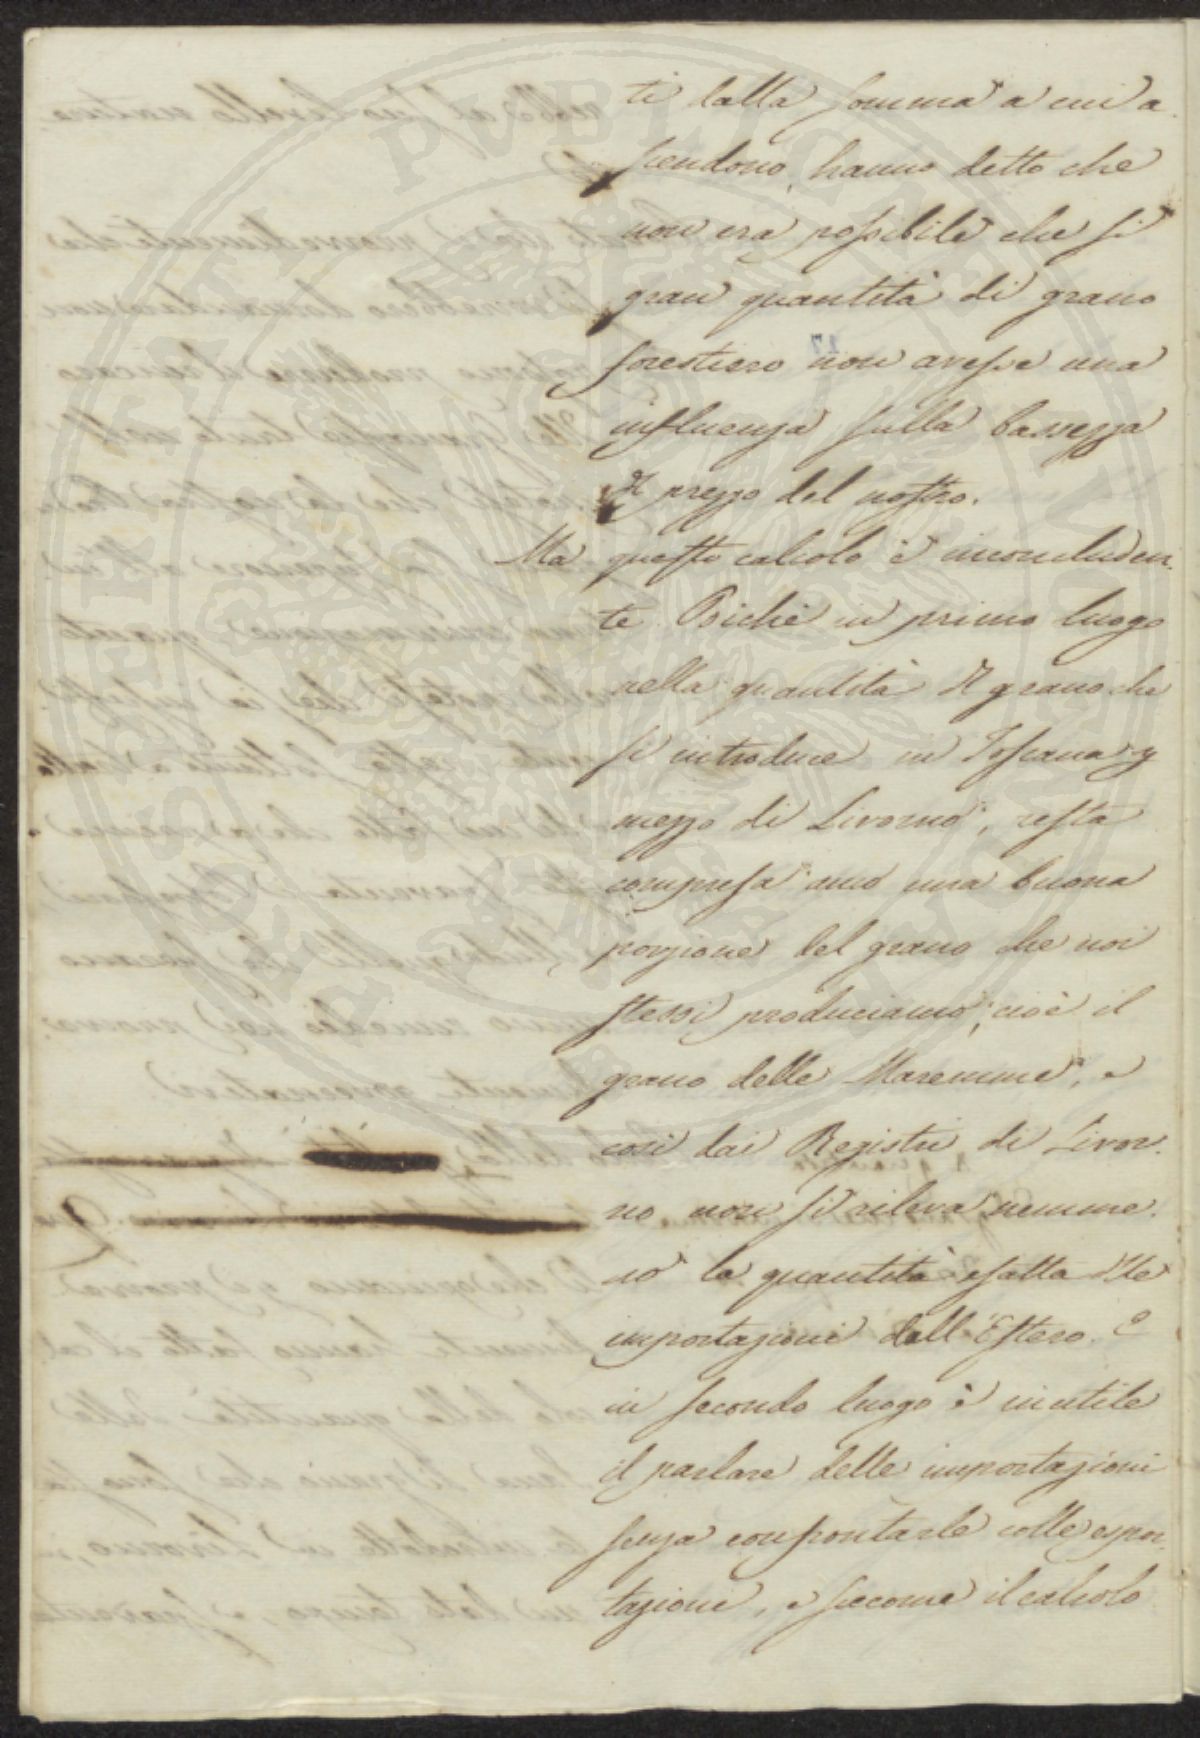 ti dalla somma a cui a
scendono, hanno detto che
non era possibile che sì
gran quantità di grano
forestiero non avesse una
influenza sulla bassezza
di prezzo del nostro.
Ma questo calcolo è inconcluden
te. Poichè in primo luogo
nella quantità di grano che
si introduce in Toscana p
mezzo di Livorno, resta
compresa anco una buona
porzione del grano che noi
stessi produciamo, cioè il
grano delle Maremme, e
così dai Registri di Livor
no non si rileva nemme
no la quantità esatta delle
importazioni dall'Estero. E
in secondo luogo è inutile
il parlare delle importazioni
senza confrontarle colle espor
tazioni, e siccome il calcolo